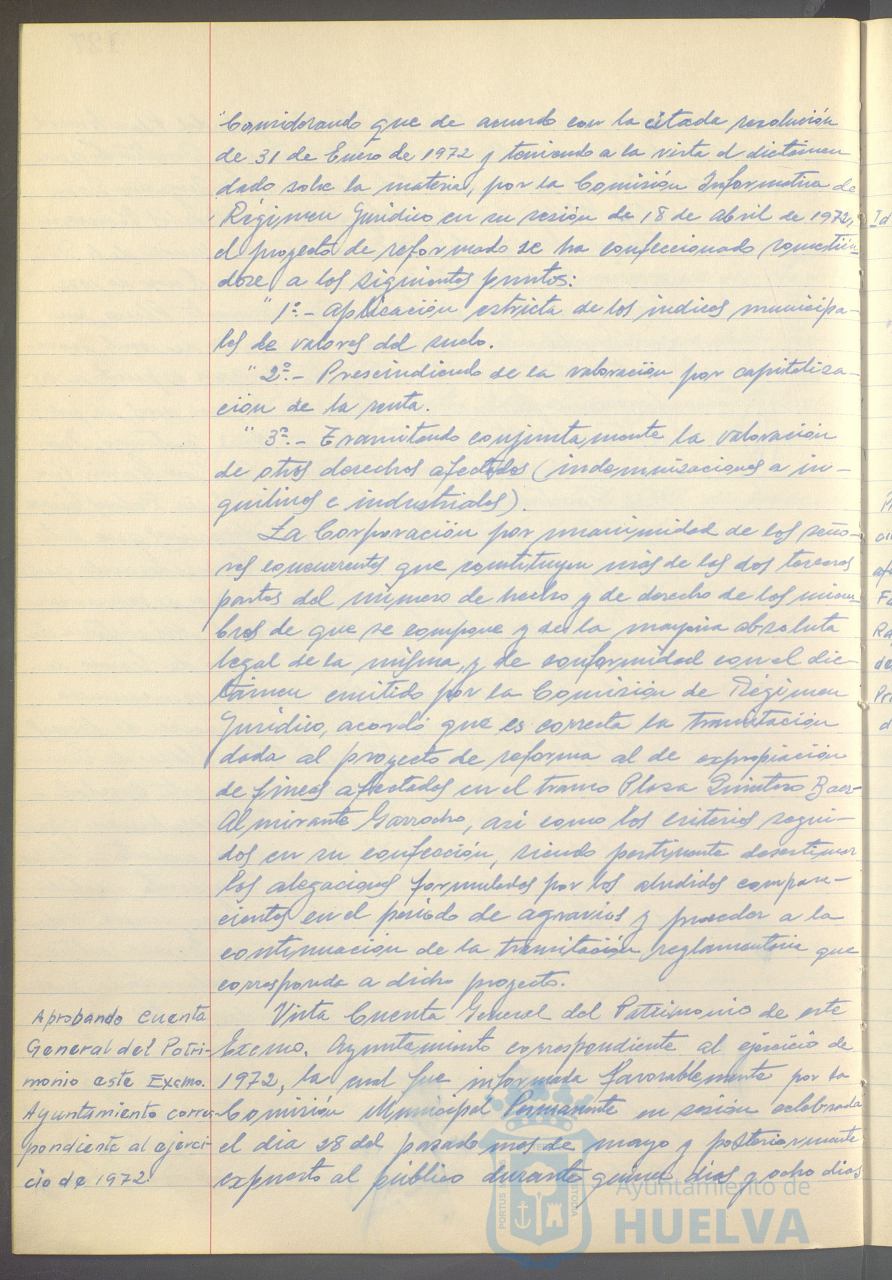 "Considerando que de acuerdo con la citada resolución
de 31 de Enero de 1972 y teniendo a la vista el dictámen
dado sobre la materia, por la Comisión Informativa de
Régimen Jurídico en su sesión de 18 de Abril de 1972,
el proyecto de reformado se ha confeccionado sometién-
dose a los siguientes puntos:
" 1º.- Aplicación estricta de los indices municipa-
les de valores del suelo.
" 2º.- Prescindiendo de la valoración por capitaliza-
ción de la renta.
" 3º.- Tramitando conjuntamente la valoración
de otros derechos afectados (indemnizaciones a in-
quilinos e industriales).
La Corporación por unanimidad de los seño-
res concurrentes que constituyen más de las dos terceras
partes del número de hecho y de derecho de los miem-
bros de que se compone y de la mayoria absoluta
legal de la misma, y de conformidad con el dic-
támen emitido por la Comisión de Régimen
Jurídico, acordó que es correcta la tramitación
dada al proyecto de reforma al de expropiación
de fincas afectadas en el tramo Plaza Quintero Baez-
Almirante Garrocho, asi como los criterios segui-
dos en su confección, siendo pertinente desestimar
las alegaciones formuladas por los aludidos compare-
cientes en el periodo de agravios y proceder a la
continuación de la tramitación reglamentaria que
corresponda a dicho proyecto.
Aprobando cuenta
General del Patri-
monio este Excmo.
Ayuntamiento corres-
pondiente al ejerci-
cio de 1972.
Vista Cuenta General del Patrimonio de este
Excmo. Ayuntamiento correspondiente al ejercicio de
1972, la cual fue informada favorablemente por la
Comisión Municipal Permanente en sesión celebrada
el dia 28 del pasado mes de mayo y posteriormente
expuesta al público durante quince dias y ocho dias
PORTUS
Ayuntamiento de
HUELVA